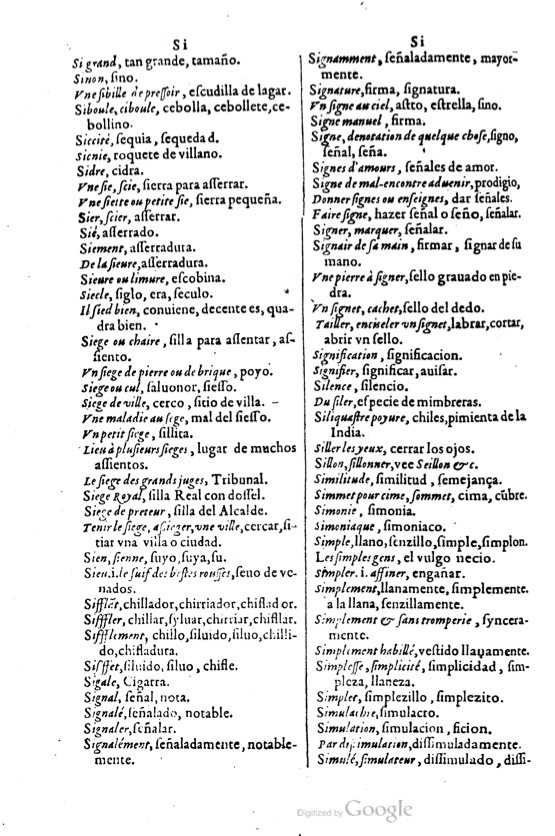 Si
Si grand, tan grande, tamaño.
Sinon, ſino.
Vne ſibille de preſſoir, eſcudilla de lagar.
Siboule, ciboule, cebolla, cebollete, ce-
bollino.
Sicciré, ſequia, ſequedad.
Sicnie, roquete de villano.
Sidre, cidra.
Vne ſie, ſcie, ſierra para aſſerrar.
Vne ſiette ou petite ſie, ſierra pequeña.
Sier, ſcier, aſſerrar.
Sié, aſſerrado.
Siement, aſſerradura.
De la ſieure, aſſerradura.
Sieure ou limure, eſcobina.
Siecle, ſiglo, era, ſeculo.
Il ſied bien, conuiene, decente es, qua-
dra bien.
Siege ou chaire, ſilla para aſſentar, aſ-
ſiento.
Vn ſiege de pierre ou de brique, poyo.
Siege ou cul, ſaluonor, ſieſſo.
Siege de ville, cerco, ſitio de villa.
Vne maladie au ſiege, mal del ſieſſo.
Vn petit ſiege, ſillita.
Lieu à pluſieurs ſieges, lugar de muchos
aſſientos.
Le ſiege des grands juges, Tribunal.
Siege Royal, ſilla Real con doſſel.
Siege de preteur, ſilla del Alcalde.
Tenir le ſiege, aſſieger, vne ville, cercar, ſi-
tiar vna villa o ciudad.
Sien, ſienne, ſuyo, ſuya, ſu.
Sieu. i. le ſuif des beſtes rouſſes, ſeuo de ve-
nados.
Sifflét, chillador, chirriador, chiflador.
Siffler, chillar, ſyluar, chirriar, chiflar.
Sifflement, chillo, ſiluido, ſiluo, chilli-
do, chifladura.
Sifflet, ſiluido, ſiluo, chifle.
Sigale, Cigarra.
Signal, ſeñal, nota.
Signalé, ſeñalado, notable.
Signaler, ſeñalar.
Signalément, ſeñaladamente, notable-
mente.
Si
Signamment, ſeñaladamente, mayor-
mente.
Signature, firma, ſignatura.
Vn ſigne au ciel, aſtro, eſtrella, ſino.
Signe manuel, firma.
Signe, denotation de quelque choſe, ſigno,
ſeñal, ſeña.
Signes d'amours, ſeñales de amor.
Signe de mal-encontre aduenir, prodigio,
Donner ſignes ou enſeignes, dar ſeñales.
Faire ſigne, hazer ſeñal o ſeño, ſeñalar.
Signer, marquer, ſeñalar.
Signair de ſa main, firmar, ſignar de ſu
mano.
Vne pierre à ſigner, ſello grauado en pie-
dra.
Vn ſignet, cachet, ſello del dedo.
Tailler, enciſeler vn ſignet, labrar, cortar,
abrir vn ſello.
Signification, ſignificacion.
Signifier, ſignificar, auiſar.
Silence, ſilencio.
Du ſiler, eſpecie de mimbreras.
Siliquaſtre poyure, chiles, pimienta de la
India.
Siller les yeux, cerrar los ojos.
Sillon, ſillonner, vee Seillon &c.
Similitude, ſimilitud, ſemejança.
Simmet pour cime, ſommet, cima, cũbre.
Simonie, ſimonia.
Simoniaque, ſimoniaco.
Simple, llano, ſenzillo, ſimple, ſimplon.
Les ſimples gens, el vulgo necio.
Simpler. i. affiner, engañar.
Simplement, llanamente, ſimplemente.
a la llana, ſenzillamente.
Simplement & ſans tromperie, ſyncera-
mente.
Simplement habillé, veſtido llayamente.
Simpleſſe, ſimplicité, ſimplicidad, ſim-
pleza, llaneza.
Simpler, ſimplezillo, ſimplezito.
Simulachre, ſimulacro.
Simulation, ſimulacion, ficion.
Par diſſimulation, diſſimuladamente.
Simulé, ſimulateur, diſſimulado, diſſi-
Digitized by Google